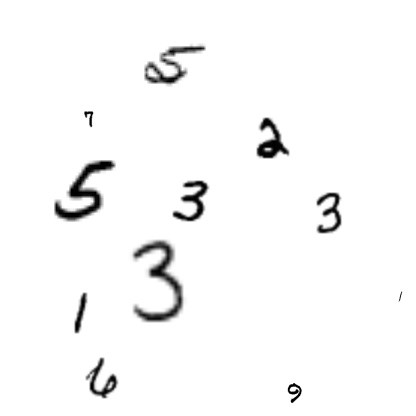 5
7
2
5 3 3
3
1 1
6 9